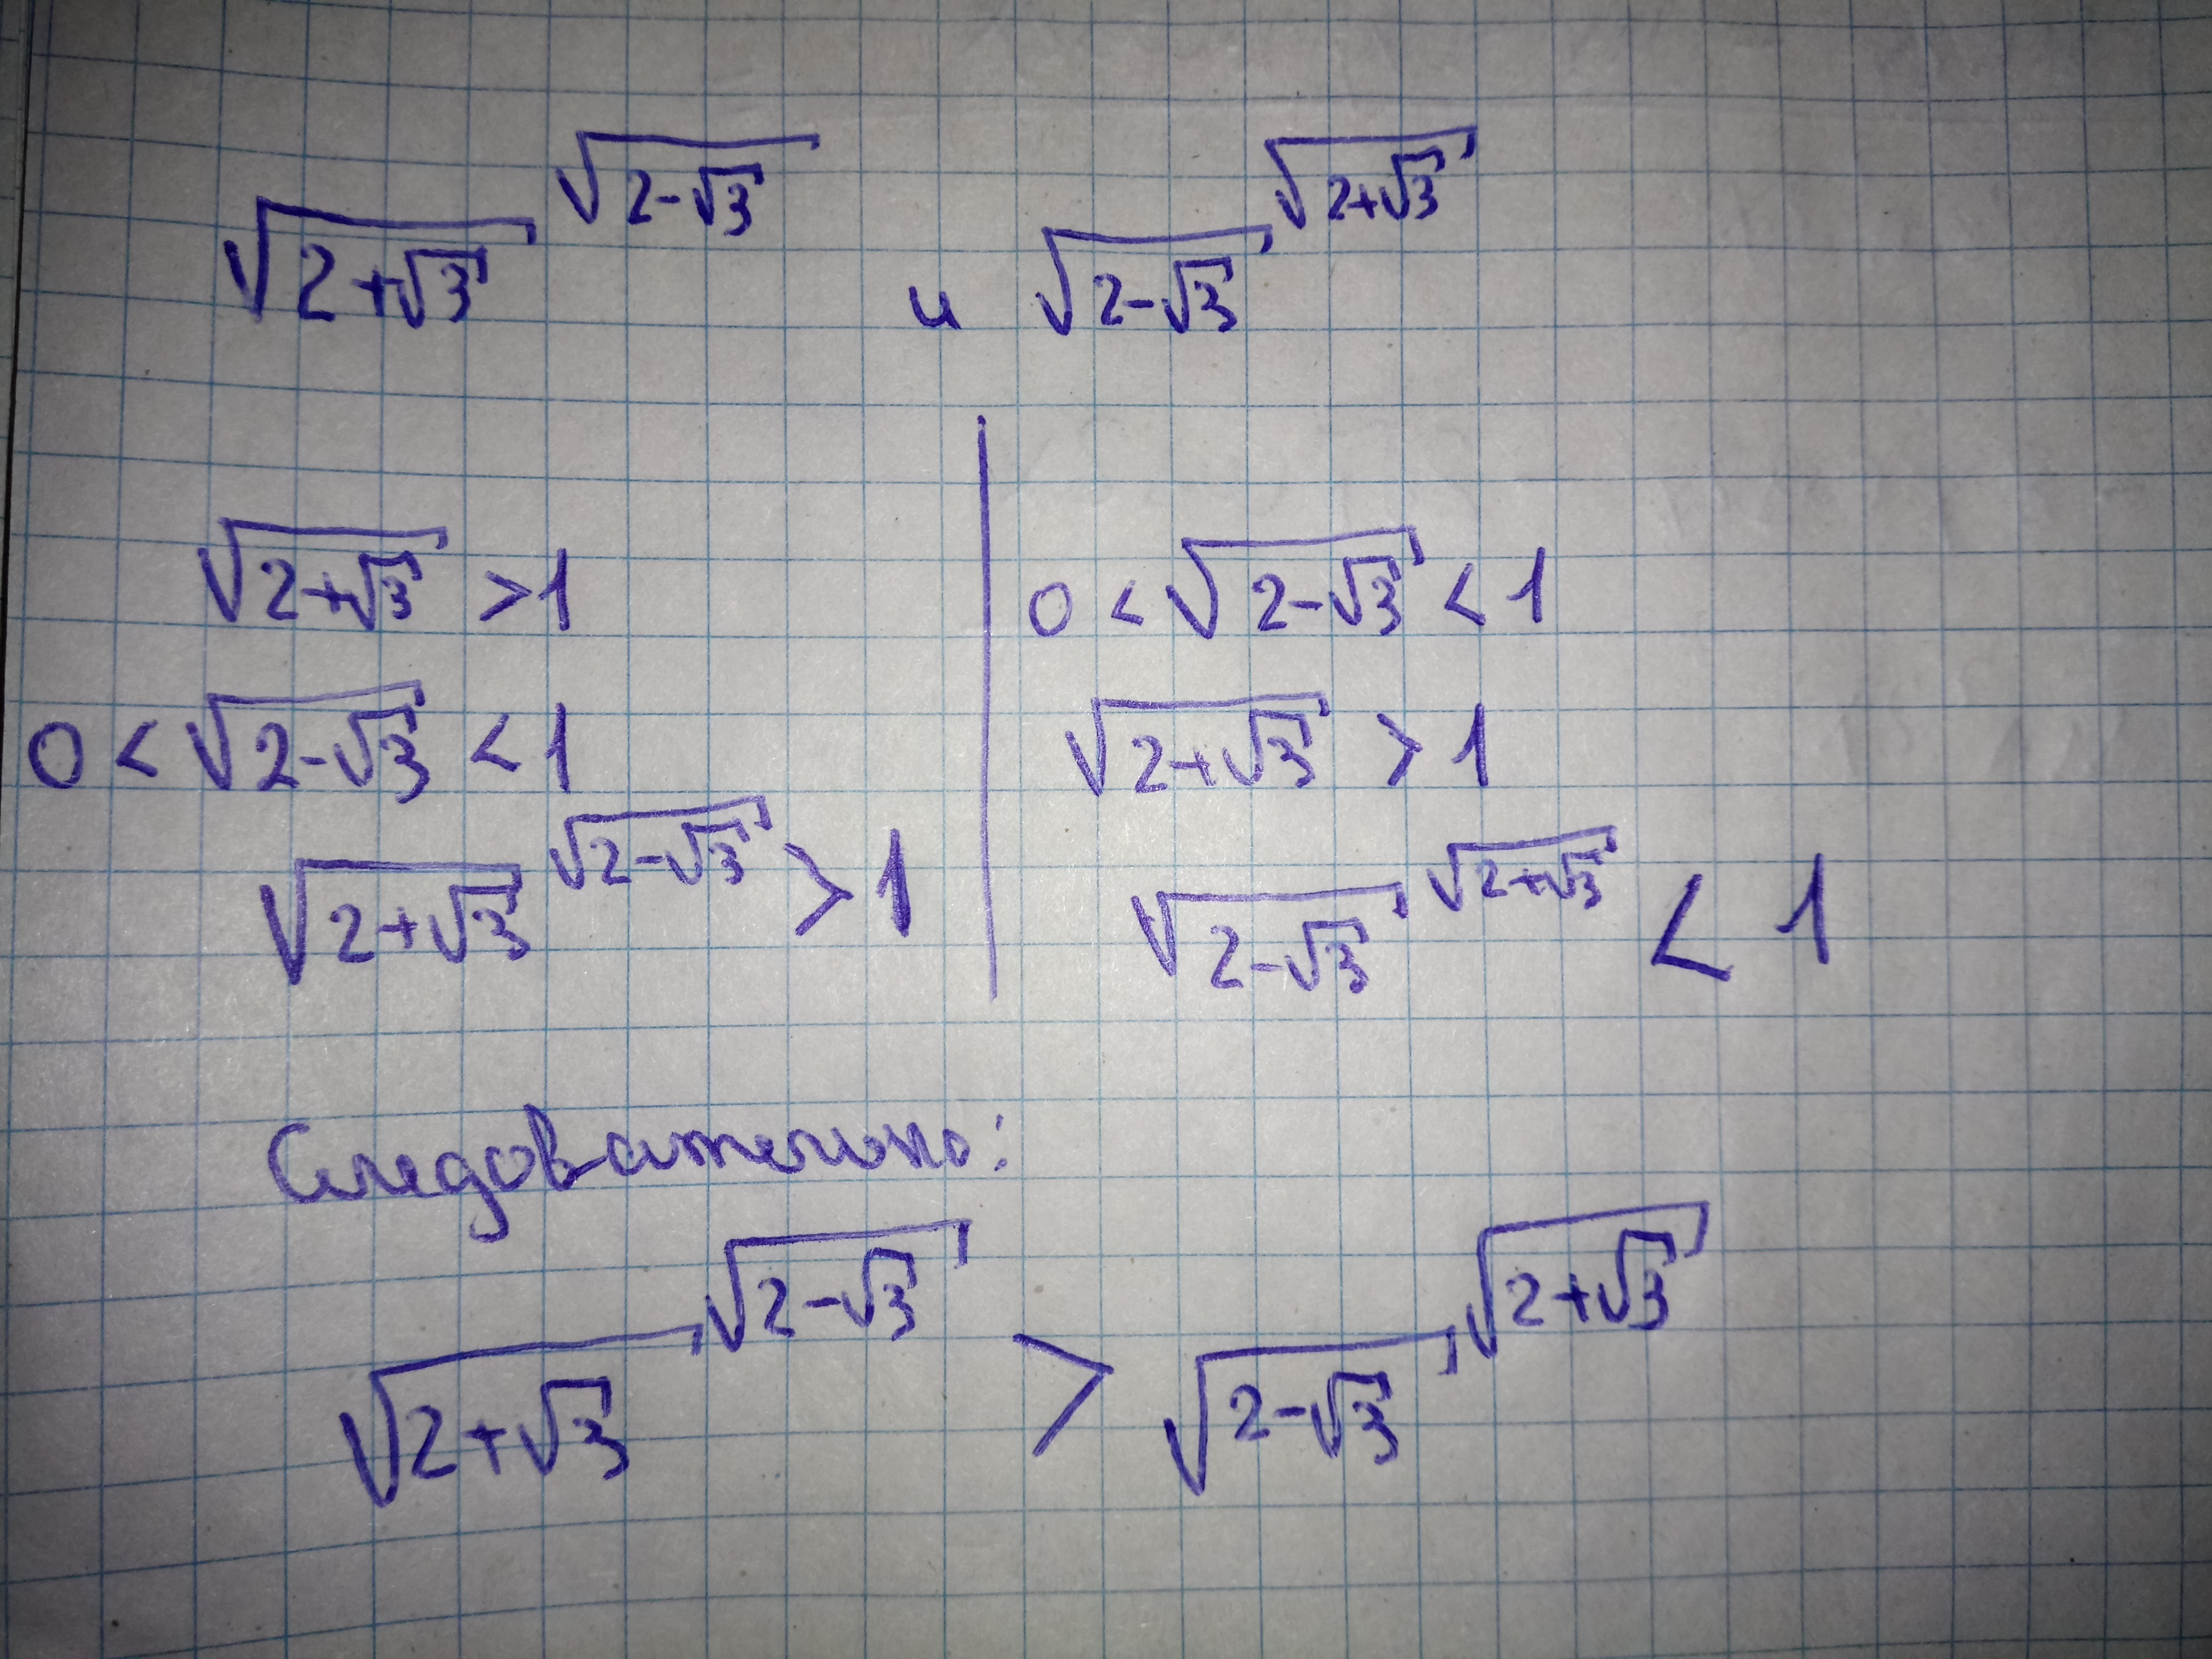 √(2+√3)^√(2-√3) и √(2-√3)^√(2+√3)
√(2+√3) > 1
0 < √(2-√3) < 1
√(2+√3)^√(2-√3) > 1
0 < √(2-√3) < 1
√(2+√3) > 1
√(2-√3)^√(2+√3) < 1
Следовательно:
√(2+√3)^√(2-√3) > √(2-√3)^√(2+√3)